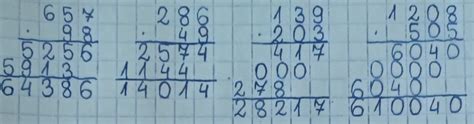 657
. 98
5256
5913
64386
286
. 49
2574
1144
14014
139
. 203
417
000
278
28217
1208
. 505
6040
0000
6040
610040